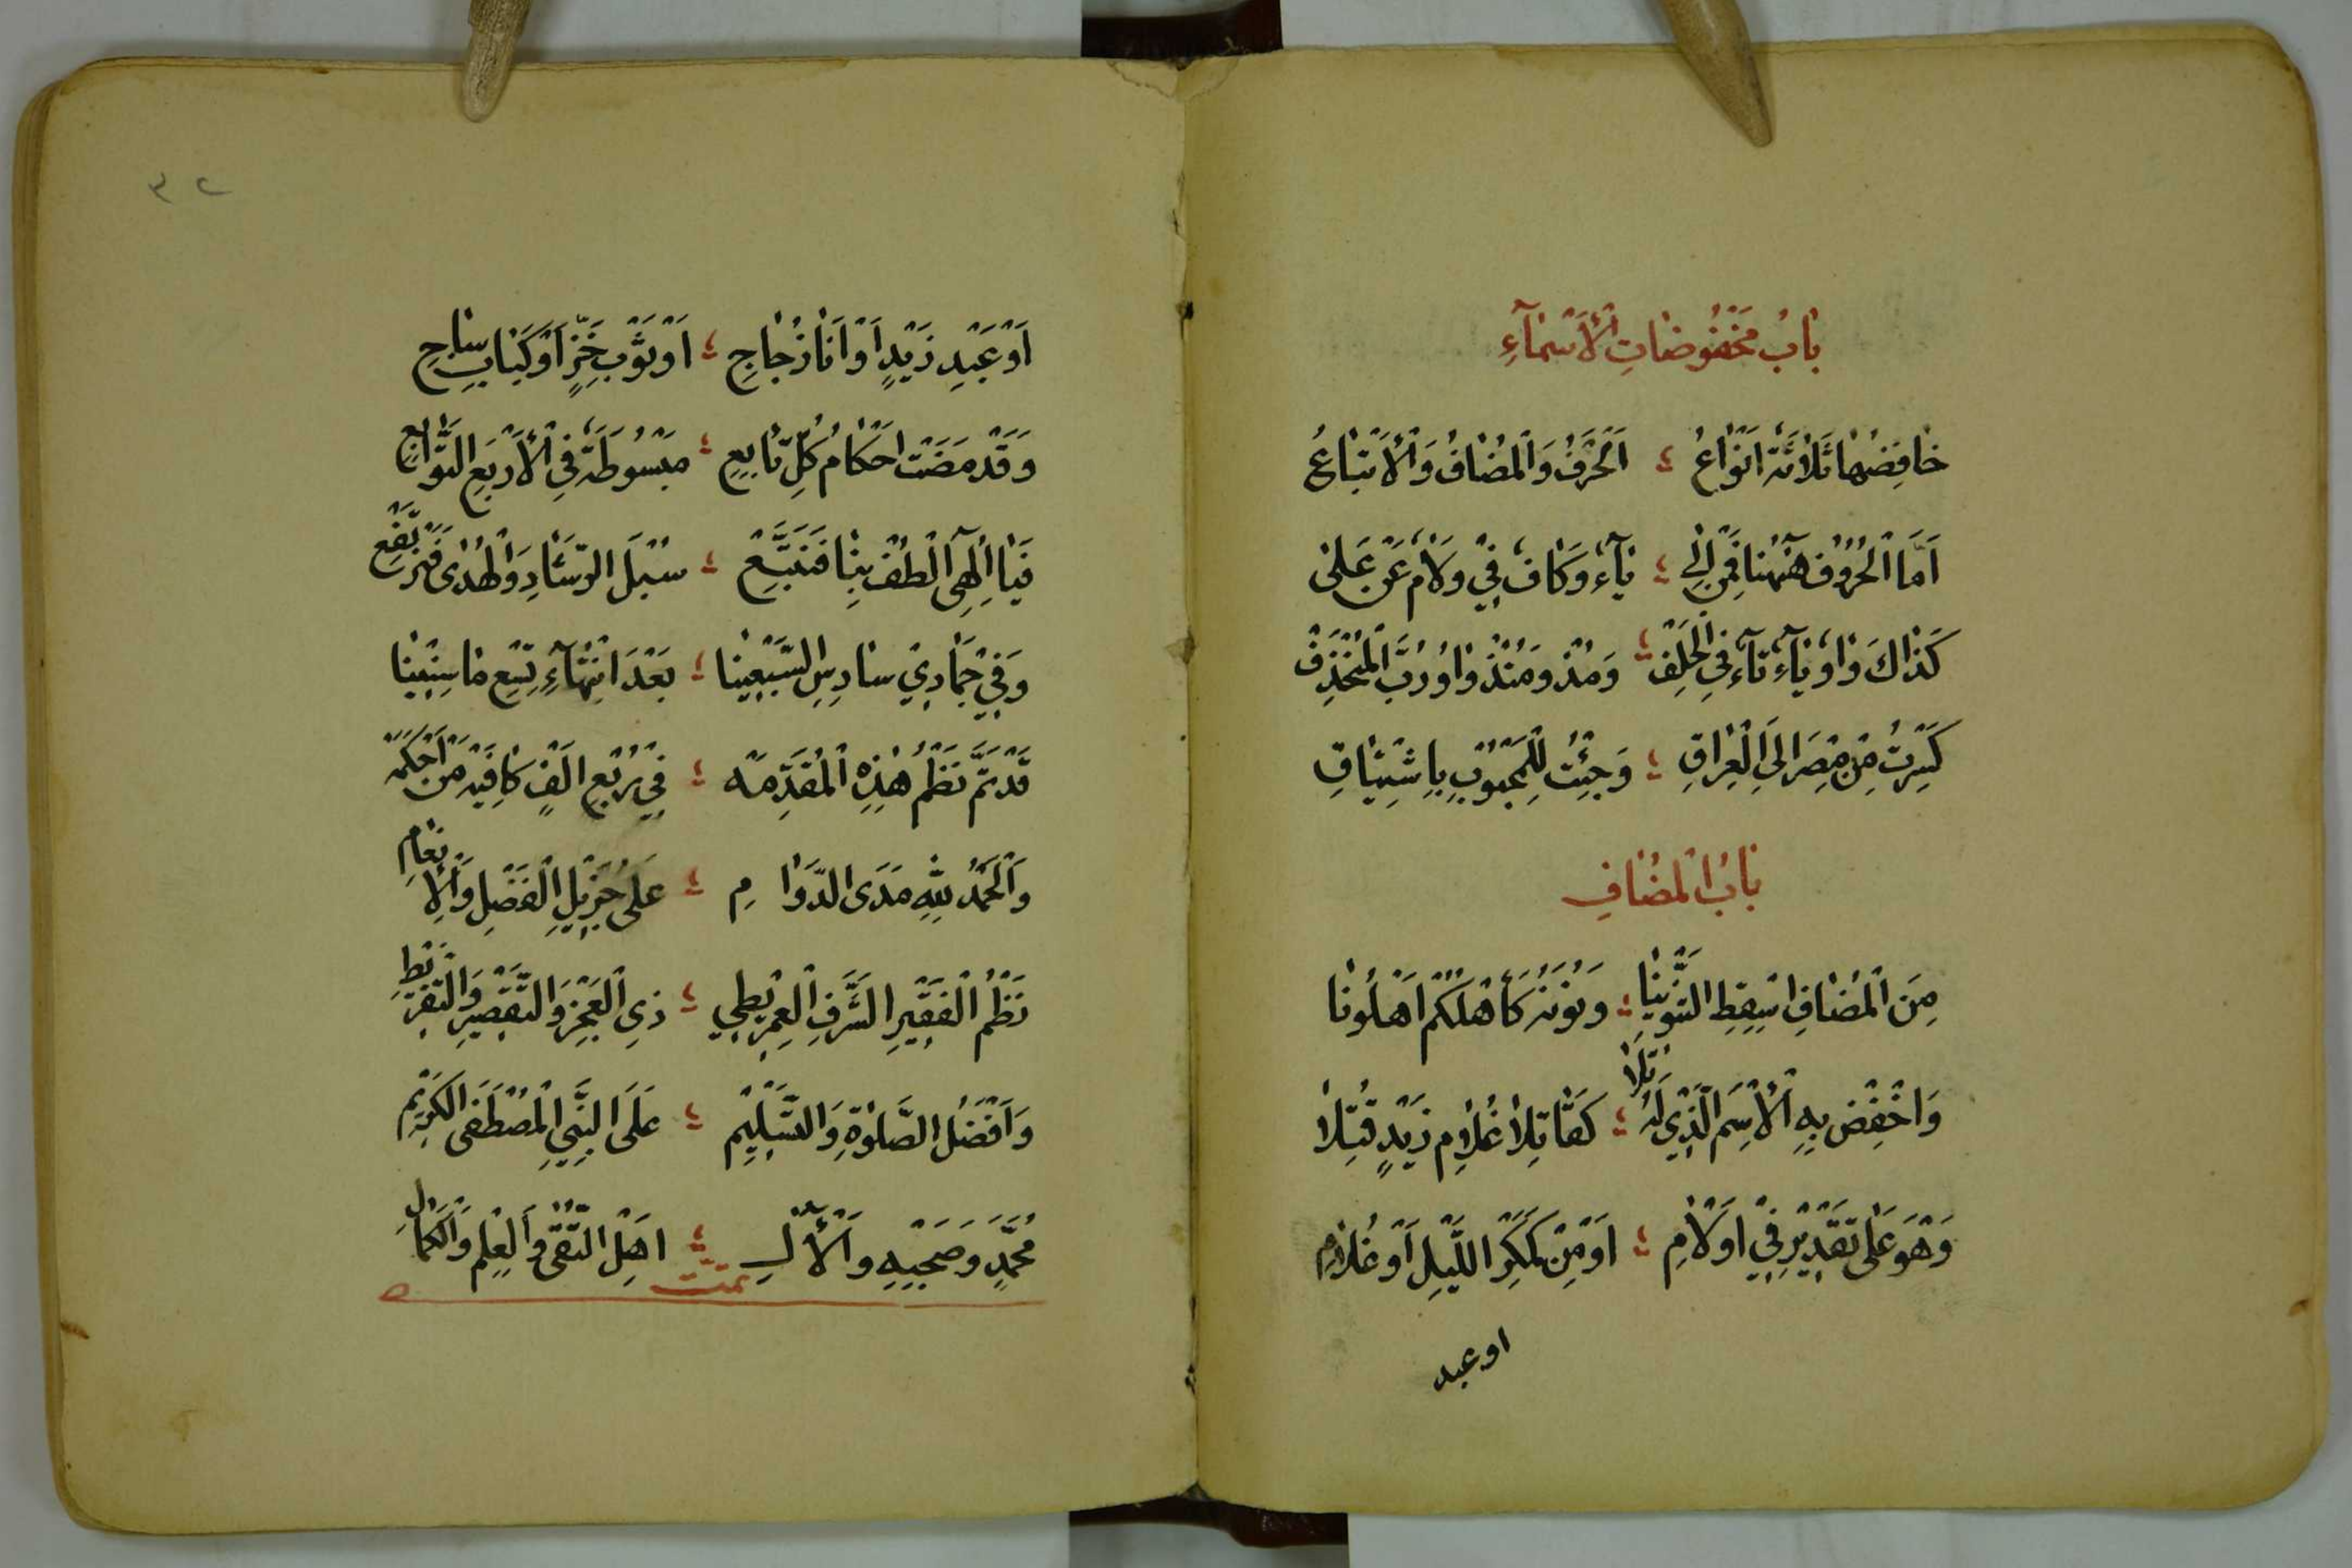 بَابُ مَخْفُوضَاتِ الْأَسْمَآءِ
خَافِضُهَا ثَلَاثَةٌ اَنْوَاعُ ؛ اَلْحَرْفُ وَالْمُضَافُ وَالْأَتْبَاعُ
اَمَّا الْحُرُوفُ هٰٓهُنَا فَمِنْ اِلٰى ؛ بَآءٌ وَكَافٌ فِيْ وَلَامٌ عَنْ عَلٰى
كَذَاكَ وَاوٌ بَآءٌ تَآءٌ فِي الْحَلِفْ ؛ وَمُذْ وَمُنْذُ وَاوُ رُبَّ الْمُنْحَذِفْ
كَسِرْتُ مِنْ مِصْرَ اِلَى الْعِرَاقِ ؛ وَجِئْتُ لِلْمَحْبُوْبِ بِاِشْتِيَاقِ
بَابُ الْمُضَافِ
مِنَ الْمُضَافِ اَسْقِطِ التَّنْوِيْنَا ؛ وَنُوْنَهُ كَأَهْلُكُمْ اَهْلُونَا
وَاخْفِضْ بِهِ الْأِسْمَ الَّذِيْ لَهُ تَلَا ؛ كَقَاتِلَا غُلَامِ زَيْدٍ قُتِلَا
وَهْوَ عَلٰى تَقْدِيْرِ فِيْ اَوْ لَامِ ؛ اَوْ مِنْ كَمَكْرِ اللَّيْلِ اَوْ غُلَامِ
او عبد
٣٢
اَوْ عَبْدِ زَيْدٍ اَوْ اَنَا زُجَاجِ ؛ اَوْ ثَوْبِ خَزٍّ اَوْ كَبَابِ سَاجِ
وَقَدْ مَضَتْ اَحْكَامُ كُلِّ تَابِعِ ؛ مَبْسُوطَةً فِي الْأَرْبَعِ التَّوَابِعِ
فَيَا اِلٰهِي الْطُفْ بِنَا فَنَتَّبِعْ ؛ سُبْلَ الرَّشَادِ وَالْهُدٰى فَنَرْتَفِعْ
وَفِيْ جُمَادِيْ سَادِسِ السَّبْعِيْنَا ؛ بَعْدَ انْتِهَآءِ تِسْعِ مَا سِنِيْنَا
قَدْ تَمَّ نَظْمُ هٰذِهِ الْمُقَدِّمَهْ ؛ فِيْ رُبْعِ اَلْفٍ كَافِيْهِ مَنْ اَحْكَمَهْ
وَالْحَمْدُ لِلّٰهِ مَدَى الدَّوَامِ ؛ عَلٰى جَزِيْلِ الْفَضْلِ وَالْاِنْعَامِ
نَظْمُ الْفَقِيْرِ الشَّرَفِ الْعِمْرِيْطِيْ ؛ ذِي الْعَجْزِ وَالتَّقْصِيْرِ وَالتَّفْرِيْطِ
وَاَفْضَلُ الصَّلٰوةِ وَالتَّسْلِيْمِ ؛ عَلَى النَّبِيِّ الْمُصْطَفَى الْكَرِيْمِ
مُحَمَّدٍ وَصَحْبِهِ وَالْأٰلِ ؛ اَهْلِ التُّقٰى وَالْعِلْمِ وَالْكَمَالِ
تمت